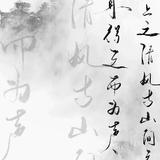 上之清风与山间之
耳得之而为声
清风与山间
而为声